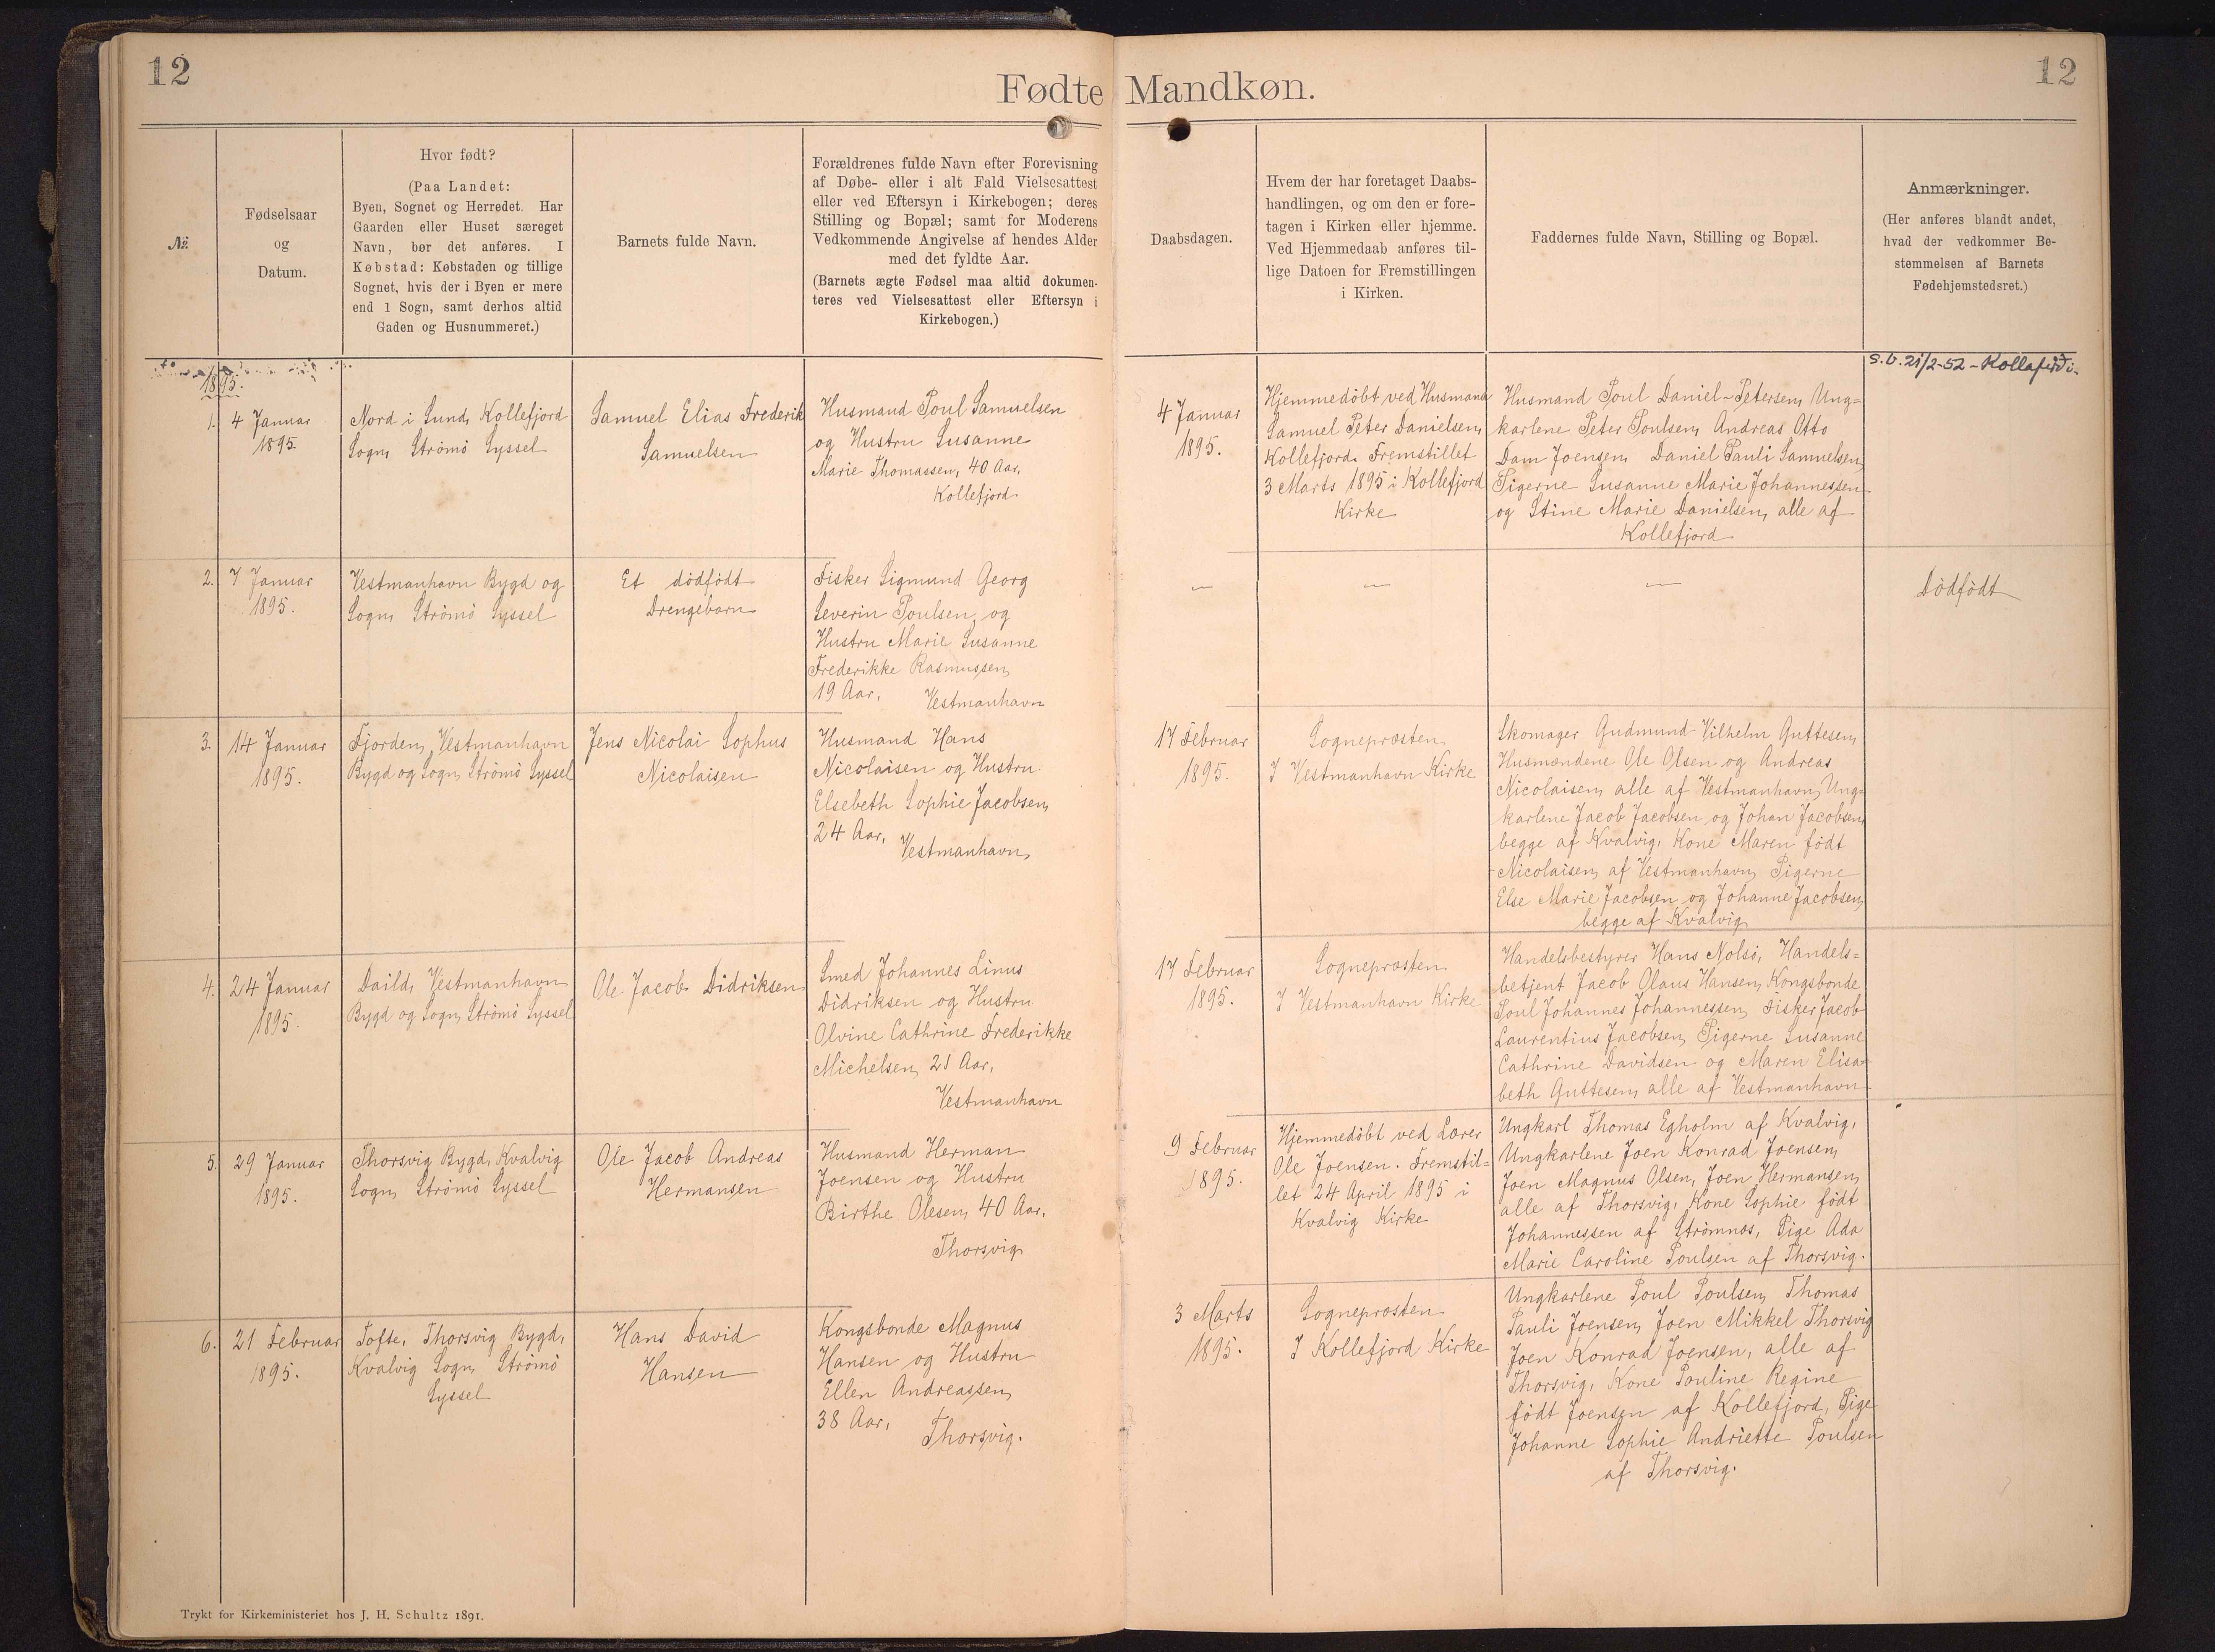 12
Fødte Mandkøn.
12
№
Fødselsaar
og
Datum.
Hvor født?
(Paa Landet:
Byen, Sognet og Herredet. Har
Gaarden eller Huset særeget
Navn, bør det anføres. I
Købstad: Købstaden og tillige
Sognet, hvis der i Byen er mere
end 1 Sogn, samt derhos altid
Gaden og Husnummeret.)
Barnets fulde Navn.
Forældrenes fulde Navn efter Forevisning
af Døbe- eller i alt Fald Vielsesattest
eller ved Eftersyn i Kirkebogen; deres
Stilling og Bopæl; samt for Moderens
Vedkommende Angivelse af hendes Alder
med det fyldte Aar.
(Barnets ægte Fødsel maa altid dokumen-
teres ved Vielsesattest eller Eftersyn i
Kirkebogen.)
Daabsdagen.
Hvem der har foretaget Daabs-
handlingen, og om den er fore-
tagen i Kirken eller hjemme.
Ved Hjemmedaab anføres til-
lige Datoen for Fremstillingen
i Kirken.
Faddernes fulde Navn, Stilling og Bopæl.
Anmærkninger.
(Her anføres blandt andet,
hvad der vedkommer Be-
stemmelsen af Barnets
Fødehjemstedsret.)
1895.
1.
4 Januar
1895.
Nord i Sund, Kollefjord
Sogn, Strömö Syssel
Samuel Elias Frederik
Samuelsen
Husmand Poul Samuelsen
og Hustru Susanne
Marie Thomassen, 40 Aar,
Kollefjord.
4 Januar
1895.
Hjemmedöbt ved Husmand
Samuel Peter Danielsen,
Kollefjord. Fremstillet
3 Marts 1895 i Kollefjord
Kirke
Husmand Poul Daniel Petersen, Ung=
karlene Peter Poulsen, Andreas Otto
Dam Joensen, Daniel Pauli Samuelsen,
Pigerne Susanne Marie Johannessen
og Stine Marie Danielsen, alle af
Kollefjord
s.v. 21/2-52 - Kollafirði.
2.
7 Januar
1895.
Vestmanhavn Bygd og
Sogn, Strömö Syssel
Et dödfödt
Drengebarn
Fisker Sigmund Georg
Severin Poulsen, og
Hustru Marie Susanne
Frederikke Rasmussen,
19 Aar, Vestmanhavn
— — —
Dödfödt
3.
14 Januar
1895.
Fjorden, Vestmanhavn
Bygd og Sogn, Strömö Syssel
Jens Nicolai Sophus
Nicolaisen
Husmand Hans
Nicolaisen og Hustru
Elsebeth Sophie Jacobsen,
24 Aar, Vestmanhavn,
17 Februar
1895.
Sognepræsten
I Vestmanhavn Kirke
Skomager Gudmund Vilhelm Guttesen,
Husmændene Ole Olsen og Andreas
Nicolaisen, alle af Vestmanhavn, Ung=
karlene Jacob Jacobsen og Johan Jacobsen,
begge af Kvalvig, Kone Maren födt
Nicolaisen, af Vestmanhavn, Pigerne
Else Marie Jacobsen og Johanne Jacobsen,
begge af Kvalvig
4.
24 Januar
1895.
Daild, Vestmanhavn
Bygd og Sogn, Strömö Syssel
Ole Jacob Didriksen
Smed Johannes Linus
Didriksen og Hustru
Olvine Cathrine Frederikke
Michelsen, 21 Aar,
Vestmanhavn
17 Februar
1895.
Sognepræsten
I Vestmanhavn Kirke
Handelsbestyrer Hans Nolsö, Handels=
betjent Jacob Olaus Hansen, Kongsbonde
Poul Johannes Johannessen, Fisker Jacob
Laurentius Jacobsen, Pigerne Susanne
Cathrine Davidsen og Maren Elisa=
beth Guttesen, alle af Vestmanhavn
5.
29 Januar
1895.
Thorsvig Bygd, Kvalvig
Sogn, Strömö Syssel
Ole Jacob Andreas
Hermansen
Husmand Herman
Joensen og Hustru
Birthe Olesen, 40 Aar,
Thorsvig
9 Februar
1895.
Hjemmedöbt ved Lærer
Ole Joensen. Fremstil=
let 24 April 1895 i
Kvalvig Kirke
Ungkarl Thomas Egholm af Kvalvig,
Ungkarlene Joen Konrad Joensen,
Joen Magnus Olsen, Joen Hermansen,
alle af Thorsvig, Kone Sophie födt
Johannessen af Strömnæs, Pige Ada
Marie Caroline Poulsen af Thorsvig.
6.
21 Februar
1895.
Tofte, Thorsvig Bygd,
Kvalvig Sogn, Strömö
Syssel
Hans David
Hansen
Kongsbonde Magnus
Hansen og Hustru
Ellen Andreassen,
38 Aar, Thorsvig.
3 Marts
1895.
Sognepræsten
I Kollefjord Kirke
Ungkarlene Poul Poulsen, Thomas
Pauli Joensen, Joen Mikkel Thorsvig
Joen Konrad Joensen, alle af
Thorsvig, Kone Pouline Regine
födt Joensen af Kollefjord, Pige
Johanne Sophie Andriette Poulsen
af Thorsvig.
Trykt for Kirkeministeriet hos J. H. Schultz 1891.